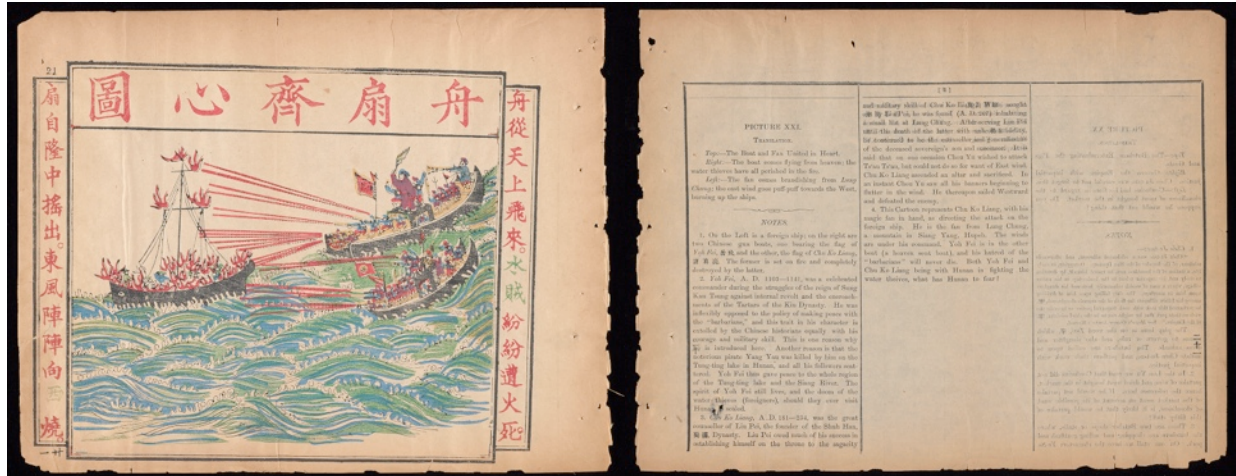 舟扇齊心圖
舟從天上飛來。水賊紛紛遭火死。
21
扇自隆中搖出。東風陣陣向西燒。
廿一
[ 2 ]
PICTURE XXI.
TRANSLATION.
Top:—The Boat and Fan United in Heart.
Right:—The boat comes flying from heaven; the
water thieves have all perished in the fire.
Left:—The fan comes brandishing from Lung
Chung; the east wind goes puff-puff towards the West,
burning up the ships.
NOTES.
1. On the Left is a foreign ship; on the right are
two Chinese gun boats, one bearing the flag of
Yoh Fei, and the other, the flag of Chu Ko Liang,
The former is set on fire and completely
destroyed by the latter.
2. Yoh Fei, A. D. was a celebrated
commander during the struggles of the reign of Sung
Kau Tsung against internal revolt and the encroach-
ments of the Tartars of the Kin Dynasty. He was
inflexibly opposed to the policy of making peace with
the "barbarians," and this trait in his character is
extolled by the Chinese historians equally with his
courage and military skill. This is one reason why
he is introduced here. Another reason is that the
notorious pirate Yang Yau was killed by him on the
Tung-ting lake in Hunan, and all his followers scat-
tered. Yoh Fei thus gave peace to the whole region
of the Tung-ting lake and the Siang River. The
spirit of Yoh Fei still lives, and the doom of the
water thieves (foreigners), should they ever visit
Hunan, is sealed.
3. Chu Ko Liang, A. D. 181—234, was the great
counsellor of Liu Pei, the founder of the Shuh Han,
Dynasty. Liu Pei owed much of his success in
establishing himself on the throne to the sagacity
and military skill of Chu Ko Liang. When sought
by Liu Pei, he was found (A. D. 207) inhabiting
a small hut at Lung Chung. After serving Liu Pei
until the death of the latter with
he continued to be the counsellor and
of the deceased sovereign's son and successor. It is
said that on one occasion Chou Yu wished to attack
Ts'au Ts'au, but could not do so for want of East wind.
Chu Ko Liang ascended an altar and sacrificed. In
an instant Chou Yu saw all his banners beginning to
flutter in the wind. He thereupon sailed Westward
and defeated the enemy.
4. This Cartoon represents Chu Ko Liang, with his
magic fan in hand, as directing the attack on the
foreign ship. He is the fan from Lung Chung,
a mountain in Siang Yang, Hupeh. The winds
are under his command. Yoh Fei is in the other
boat (a heaven sent boat), and his hatred of the
"barbarians" will never die. Both Yoh Fei and
Chu Ko Liang being with Hunan in fighting the
water thieves, what has Hunan to fear?